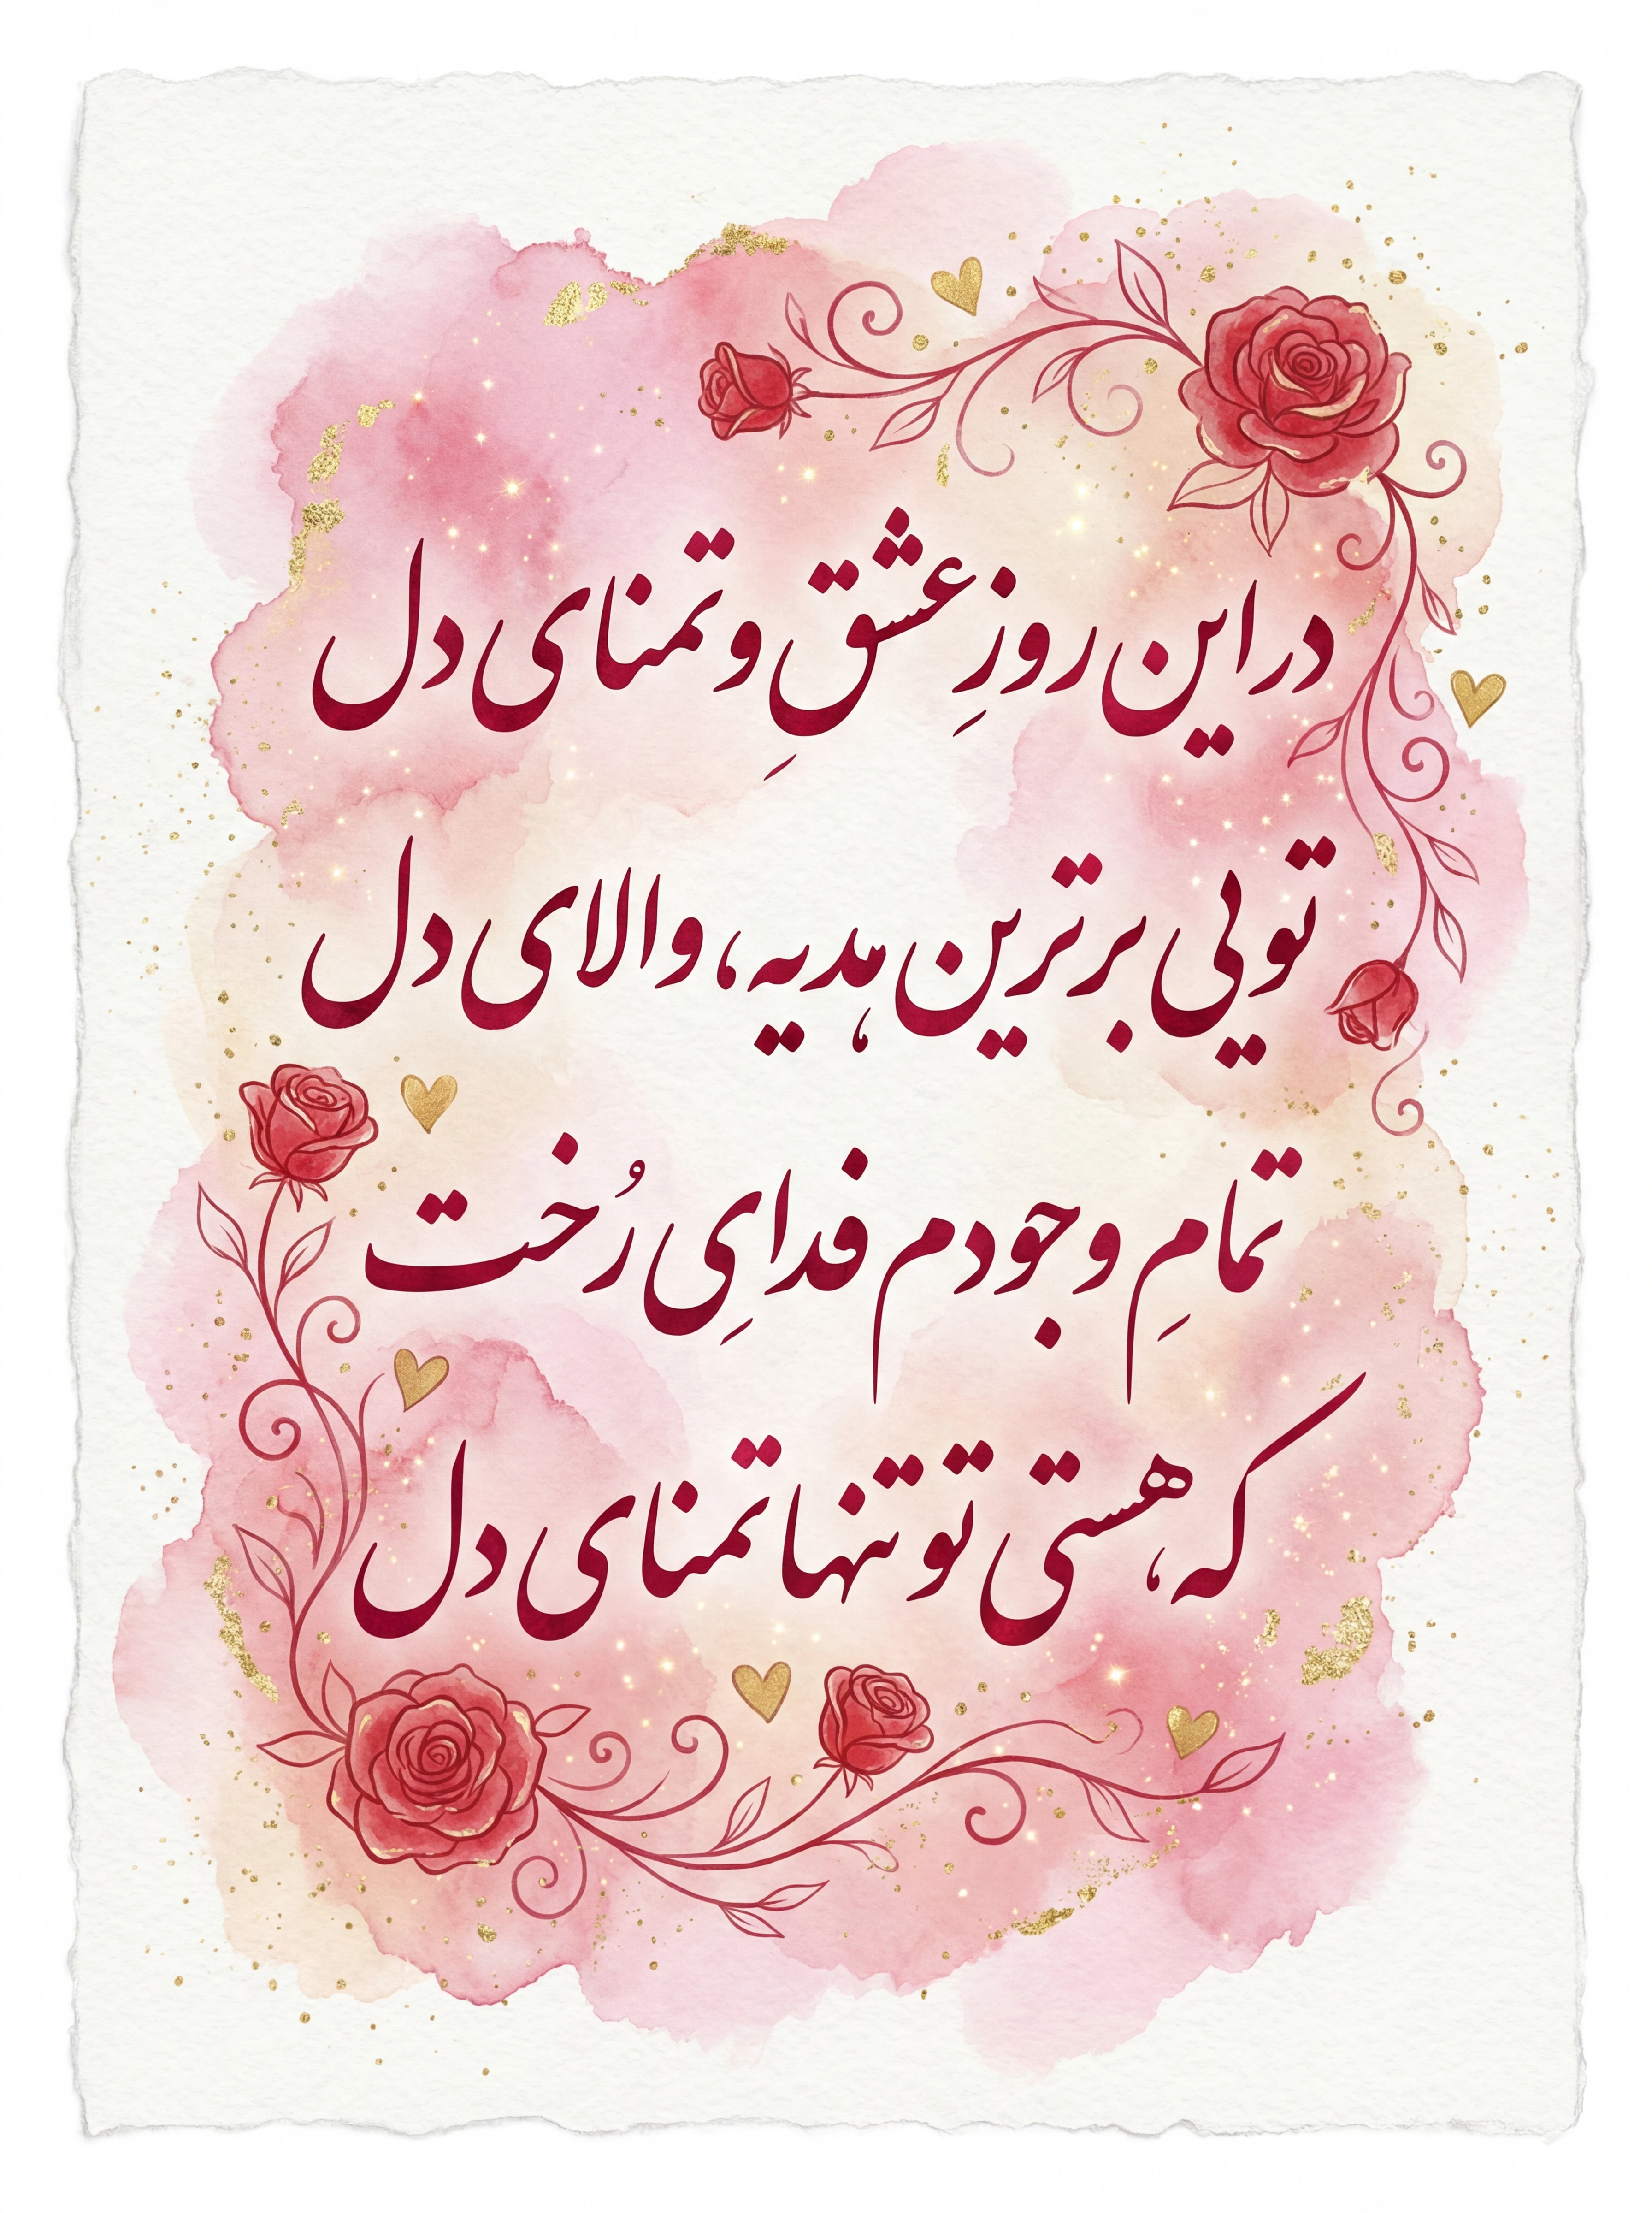 در این روزِ عشقِ و تمنای دل
تویی برترین هدیه، والای دل
تمامِ وجودم فدایِ رُخت
که هستی تو تنها تمنای دل